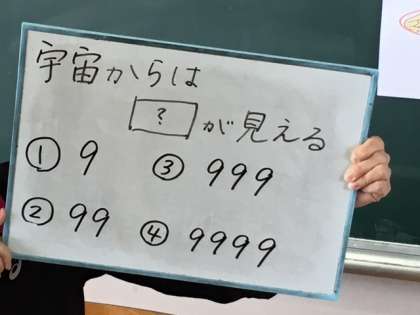 宇宙からは
?が見える
① 9 ③ 999
② 99 ④ 9999